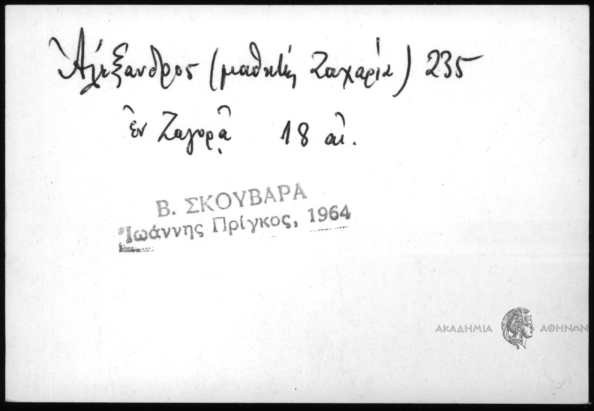 Ἀλέξανδρος (μαθητὴς Ζαχαρία) 235
ἐν Ζαγορᾷ 18 αἰ.
Β. ΣΚΟΥΒΑΡΑ
Ἰωάννης Πρίγκος, 1964
ΑΚΑΔΗΜΙΑ ΑΘΗΝΩΝ